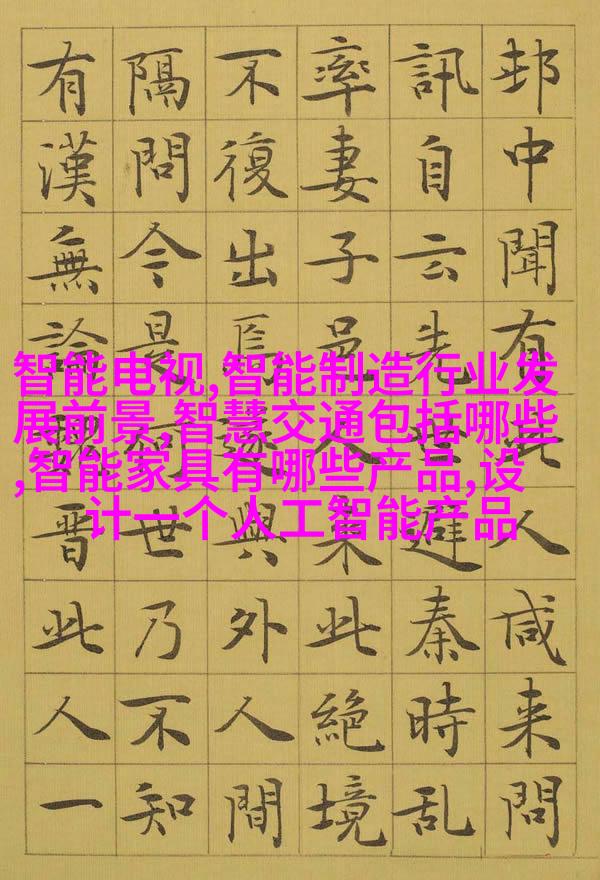 邨中聞有此人咸来問
訊自云先世避秦時乱
率妻子邑人來此絶境
不復出焉遂與外人間
隔問今是何世乃不知
有漢無論魏晋此人一
智能电视,智能制造行业发
展前景,智慧交通包括哪些
,智能家具有哪些产品,设
计一个人工智能产品